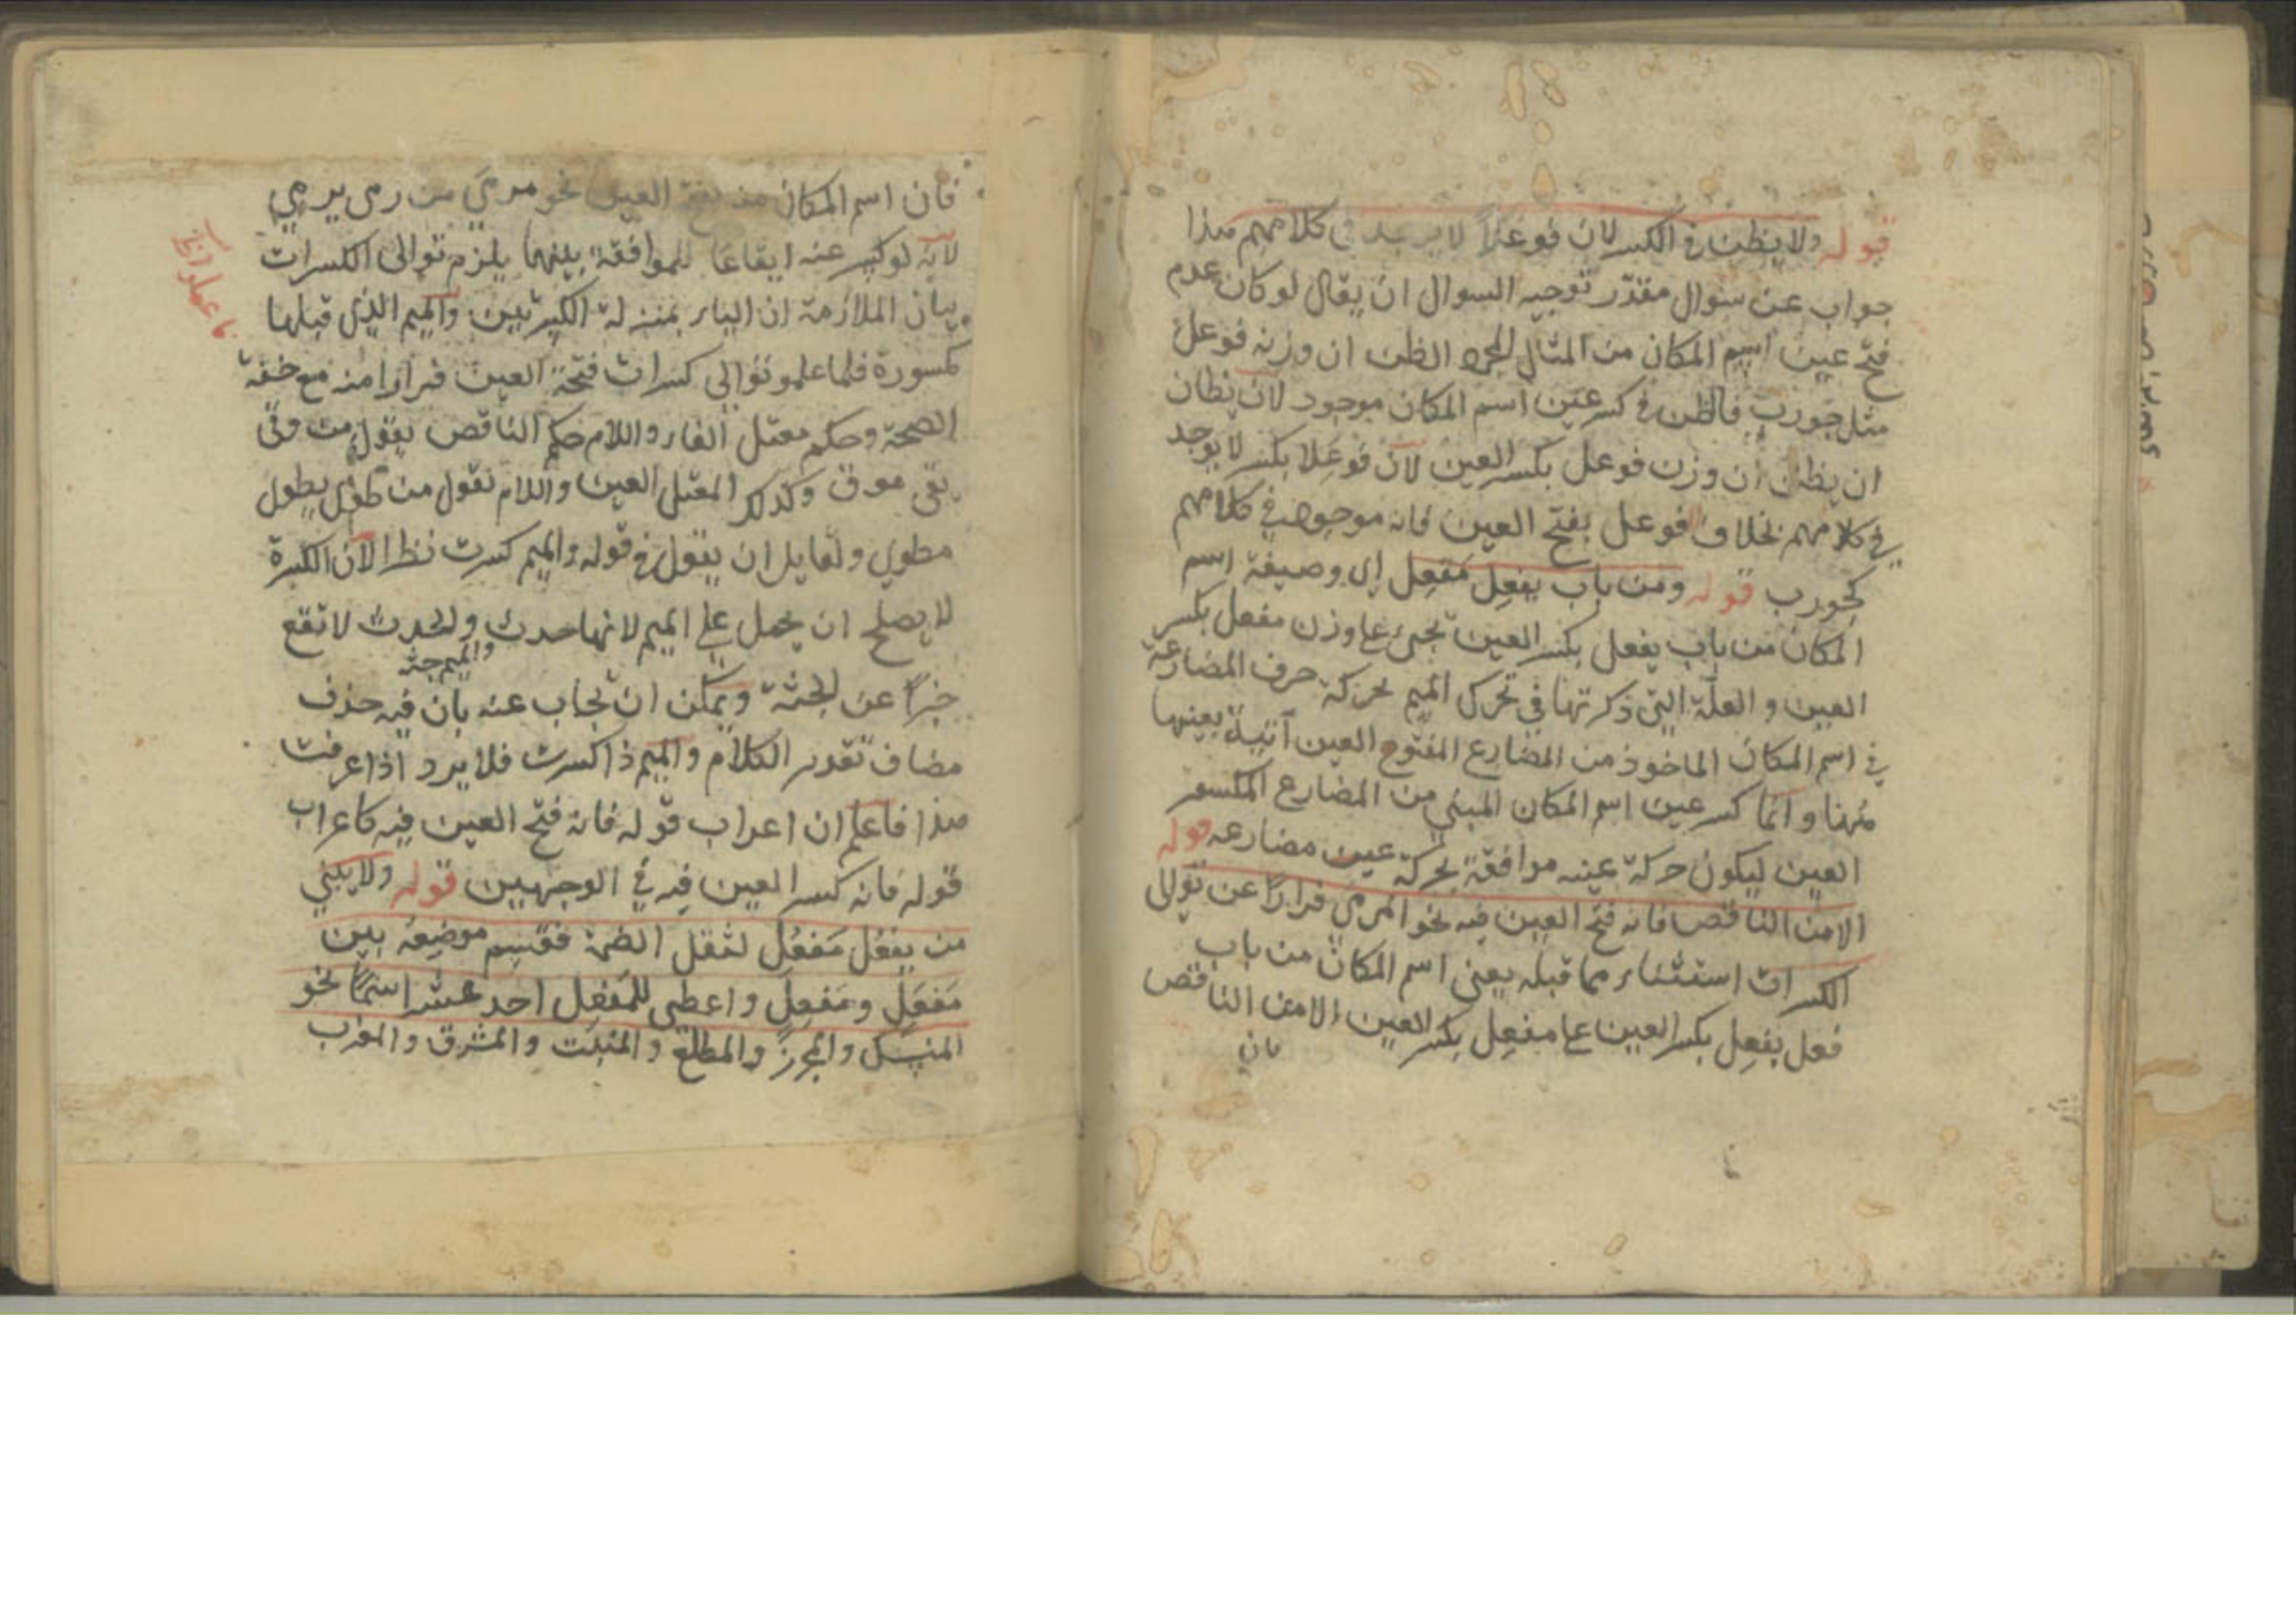 قوله ولا يظن في الكسر لان فوعلاً لا يوجد في كلامهم هذا
جواب عن سؤال مقدّر توجيه السوال ان يقال لو كان عدم
فتح عين اسم المكان من المثال الظن ان وزنه فوعل
مثل جورب فالظن في كسر عين اسم المكان موجود لان يظان
ان يظن ان وزن فوعل بكسر العين لان فوعلا بكسر لا يوجد
في كلامهم بخلاف فوعل بفتح العين فانه موجود في كلامهم
كجورب قوله ومن باب يفعِل مَفعِل اي وصيغة اسم
المكان من باب يفعل بكسر العين تجيئ على وزن مفعل بكسر
العين والعلّة التي ذكرتها في تحرك الميم بحركة حرف المضارعة
في اسم المكان الماخوذ من المضارع المفتوح العين آتية بعينها
ههنا وانما كسر عين اسم المكان المبني من المضارع المكسور
العين ليكون حركة عينه موافقة بحركة عين مضارعه قوله
الا من الناقص فانه فتح العين فيه نحو المرمَى فرارًا عن توالى
الكسرات استثناء مما قبله يعني اسم المكان من باب
فعل يفعِل بكسر العين على مفعِل بكسر العين الا من الناقص
فان
فان اسم المكان منه بفتح العين نحو مرمَى من رمى يرمي
لانه لو كسر عنه ايقاعا للموافقة بينهما يلزم توالى الكسرات
بيان الملازمة ان الياء بمنزلة الكسرتين والميم الذي قبلها
مكسورة فلما علمو توالى كسرات فتحة العين فرارا منه مع خفة
الصحة وحكم معتل الفاء واللام حكم الناقص يقول من وقى
يقى موقى وكذلك المعتل العين واللام تقول من طوى يطوى
مطوي ولقايل ان يقول في قوله والميم كسرت نظرا لان الكسرة
لا يصلح ان يحمل على الميم لانها حدث والحدث لا تقع
والميم جثة
خبرًا عن الجثة ويمكن ان يجاب عنه بان فيه حذف
مضاف تقدير الكلام والميم ذا كسرت فلا يرد اذا عرفت
هذا فاعلم ان اعراب قوله فانه فتح العين فيه كاعراب
قوله فانه كسر العين فيه في الوجهين قوله ولا يبني
من يفعُل مَفعُل لثقل الضمة فقسم موضعه بين
مَفعَل ومَفعِل واعطى للمَفعِل احد عشر اسمًا نحو
المنسِك والمجزِر والمطلع والمنبِت والمشرق والمغرب